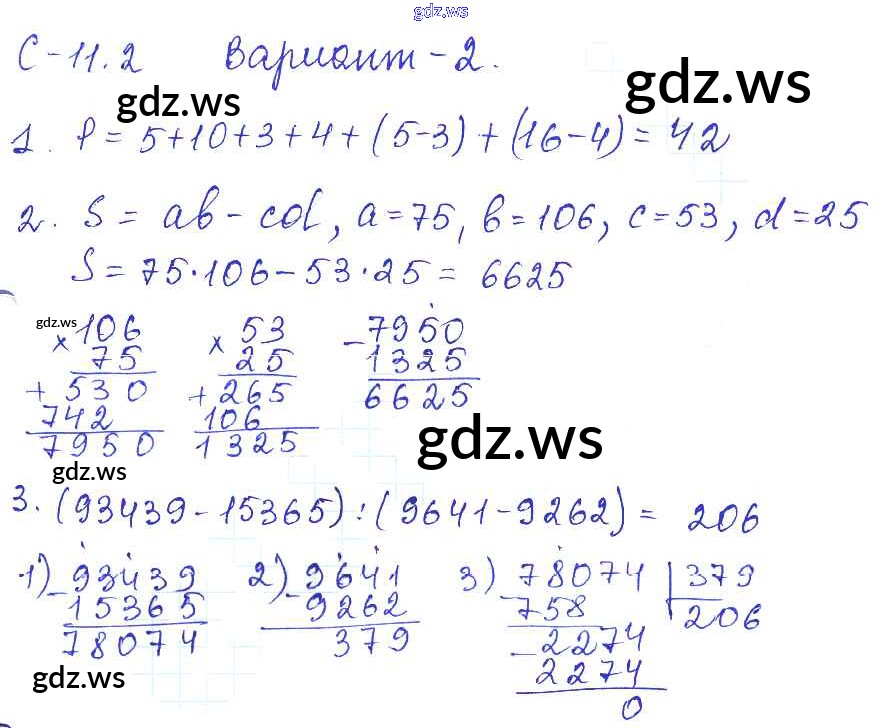 gdz.ws
С-11.2 Вариант-2.
gdz.ws
gdz.ws
1. P = 5+10+3+4+(5-3)+(16-4)=42
2. S = ab-cd, a=75, b=106, c=53, d=25
S=75·106-53·25= 6625
gdz.ws
×106
75
+ 530
742
7950
× 53
25
+ 265
106
1325
-7950
1325
6625
gdz.ws
gdz.ws
3. (93439-15365):(9641-9262)= 206
1) -93439
15365
78074
2) -9641
9262
379
3) -78074 |379
758 206
-2274
2274
0
gdz.ws
gdz.ws